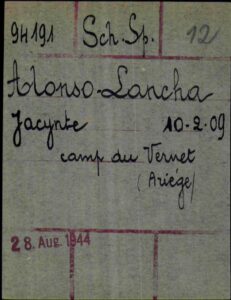 9H191 Sch. Sp. 12
Alonso-Lancha
Jacynte 10-2-09
camp du Vernet
(Ariége)
28. Aug. 1944